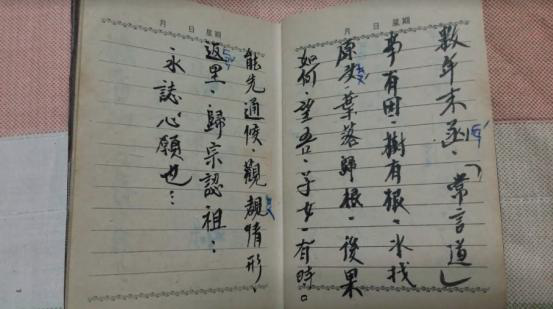 月 日 星期
數年未函.「常言道」
事有因.樹有根.水找
原头.葉落歸根.後果
如何.望吾.子女.有時。
月 日 星期
能先通候.觀覌情形.
返里.歸宗認.祖:
永誌心願也...